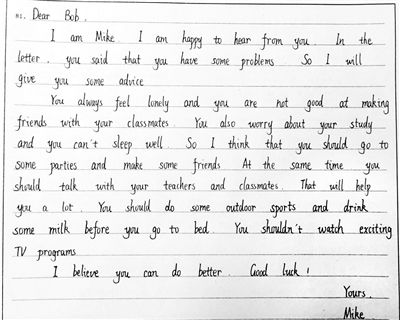 Dear Bob.
I am Mike. I am happy to hear from you. In the
letter, you said that you have some problems. So I will
give you some advice.
You always feel lonely and you are not good at making
friends with your classmates. You also worry about your study
and you can't sleep well. So I think that you should go to
some parties and make some friends. At the same time you
should talk with your teachers and classmates. That will help
you a lot. You should do some outdoor sports and drink
some milk before you go to bed. You shouldn't watch exciting
TV programs
I believe you can do better. Good luck!
Yours.
Mike